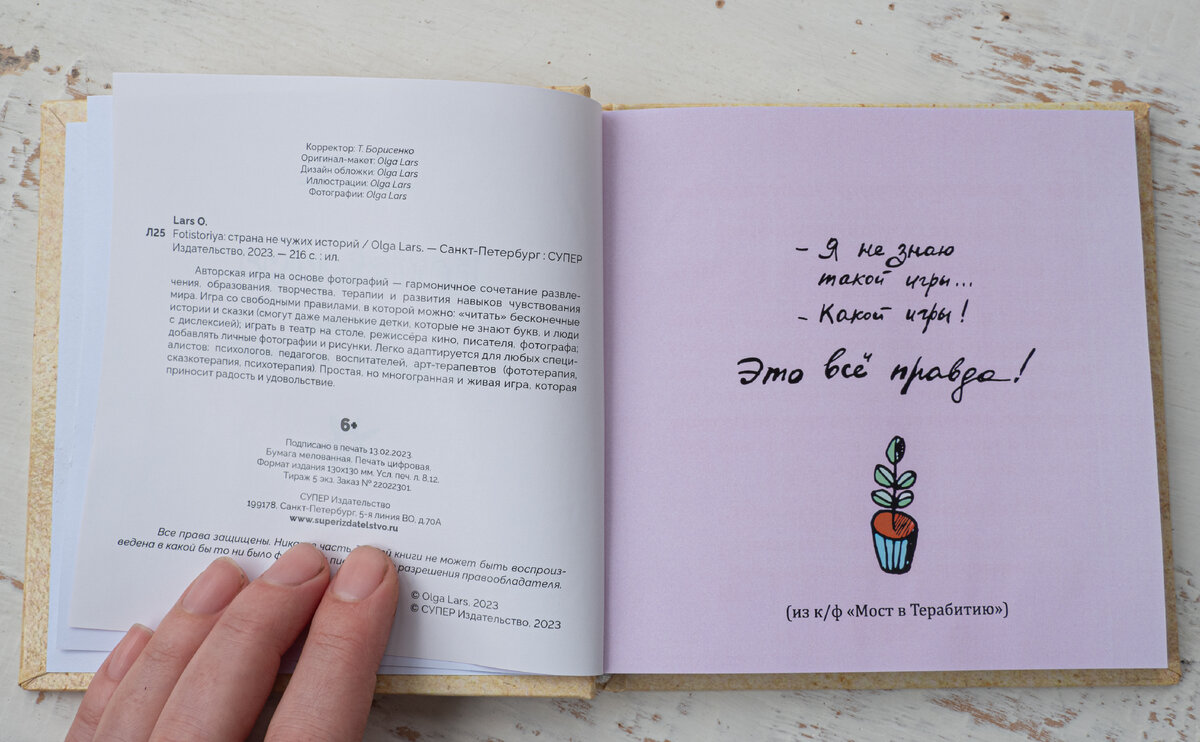 Корректор: Т. Борисенко
Оригинал-макет: Olga Lars
Дизайн обложки: Olga Lars
Иллюстрации: Olga Lars
Фотографии: Olga Lars
Lars O.
Л25 Fotistoriya: страна не чужих историй / Olga Lars. — Санкт-Петербург : СУПЕР
Издательство, 2023. — 216 с. : ил.
Авторская игра на основе фотографий — гармоничное сочетание развле-
чения, образования, творчества, терапии и развития навыков чувствования
мира. Игра со свободными правилами, в которой можно: «читать» бесконечные
истории и сказки (смогут даже маленькие детки, которые не знают букв, и люди
с дислексией); играть в театр на столе, режиссёра кино, писателя, фотографа;
добавлять личные фотографии и рисунки. Легко адаптируется для любых специ-
алистов: психологов, педагогов, воспитателей, арт-терапевтов (фототерапия,
сказкотерапия, психотерапия). Простая, но многогранная и живая игра, которая
приносит радость и удовольствие.
6+
Подписано в печать 13.02.2023.
Бумага мелованная. Печать цифровая.
Формат издания 130х130 мм. Усл. печ. л. 8,12.
Тираж 5 экз. Заказ № 22022301.
СУПЕР Издательство
199178, Санкт-Петербург, 5-я линия ВО, д.70А
www.superizdatelstvo.ru
Все права защищены. часть книги не может быть воспроиз-
ведена в какой бы то ни было разрешения правообладателя.
© Olga Lars, 2023
© СУПЕР Издательство, 2023
- Я не знаю
такой игры...
- Какой игры!
Это всё правда!
(из к/ф «Мост в Терабитию»)